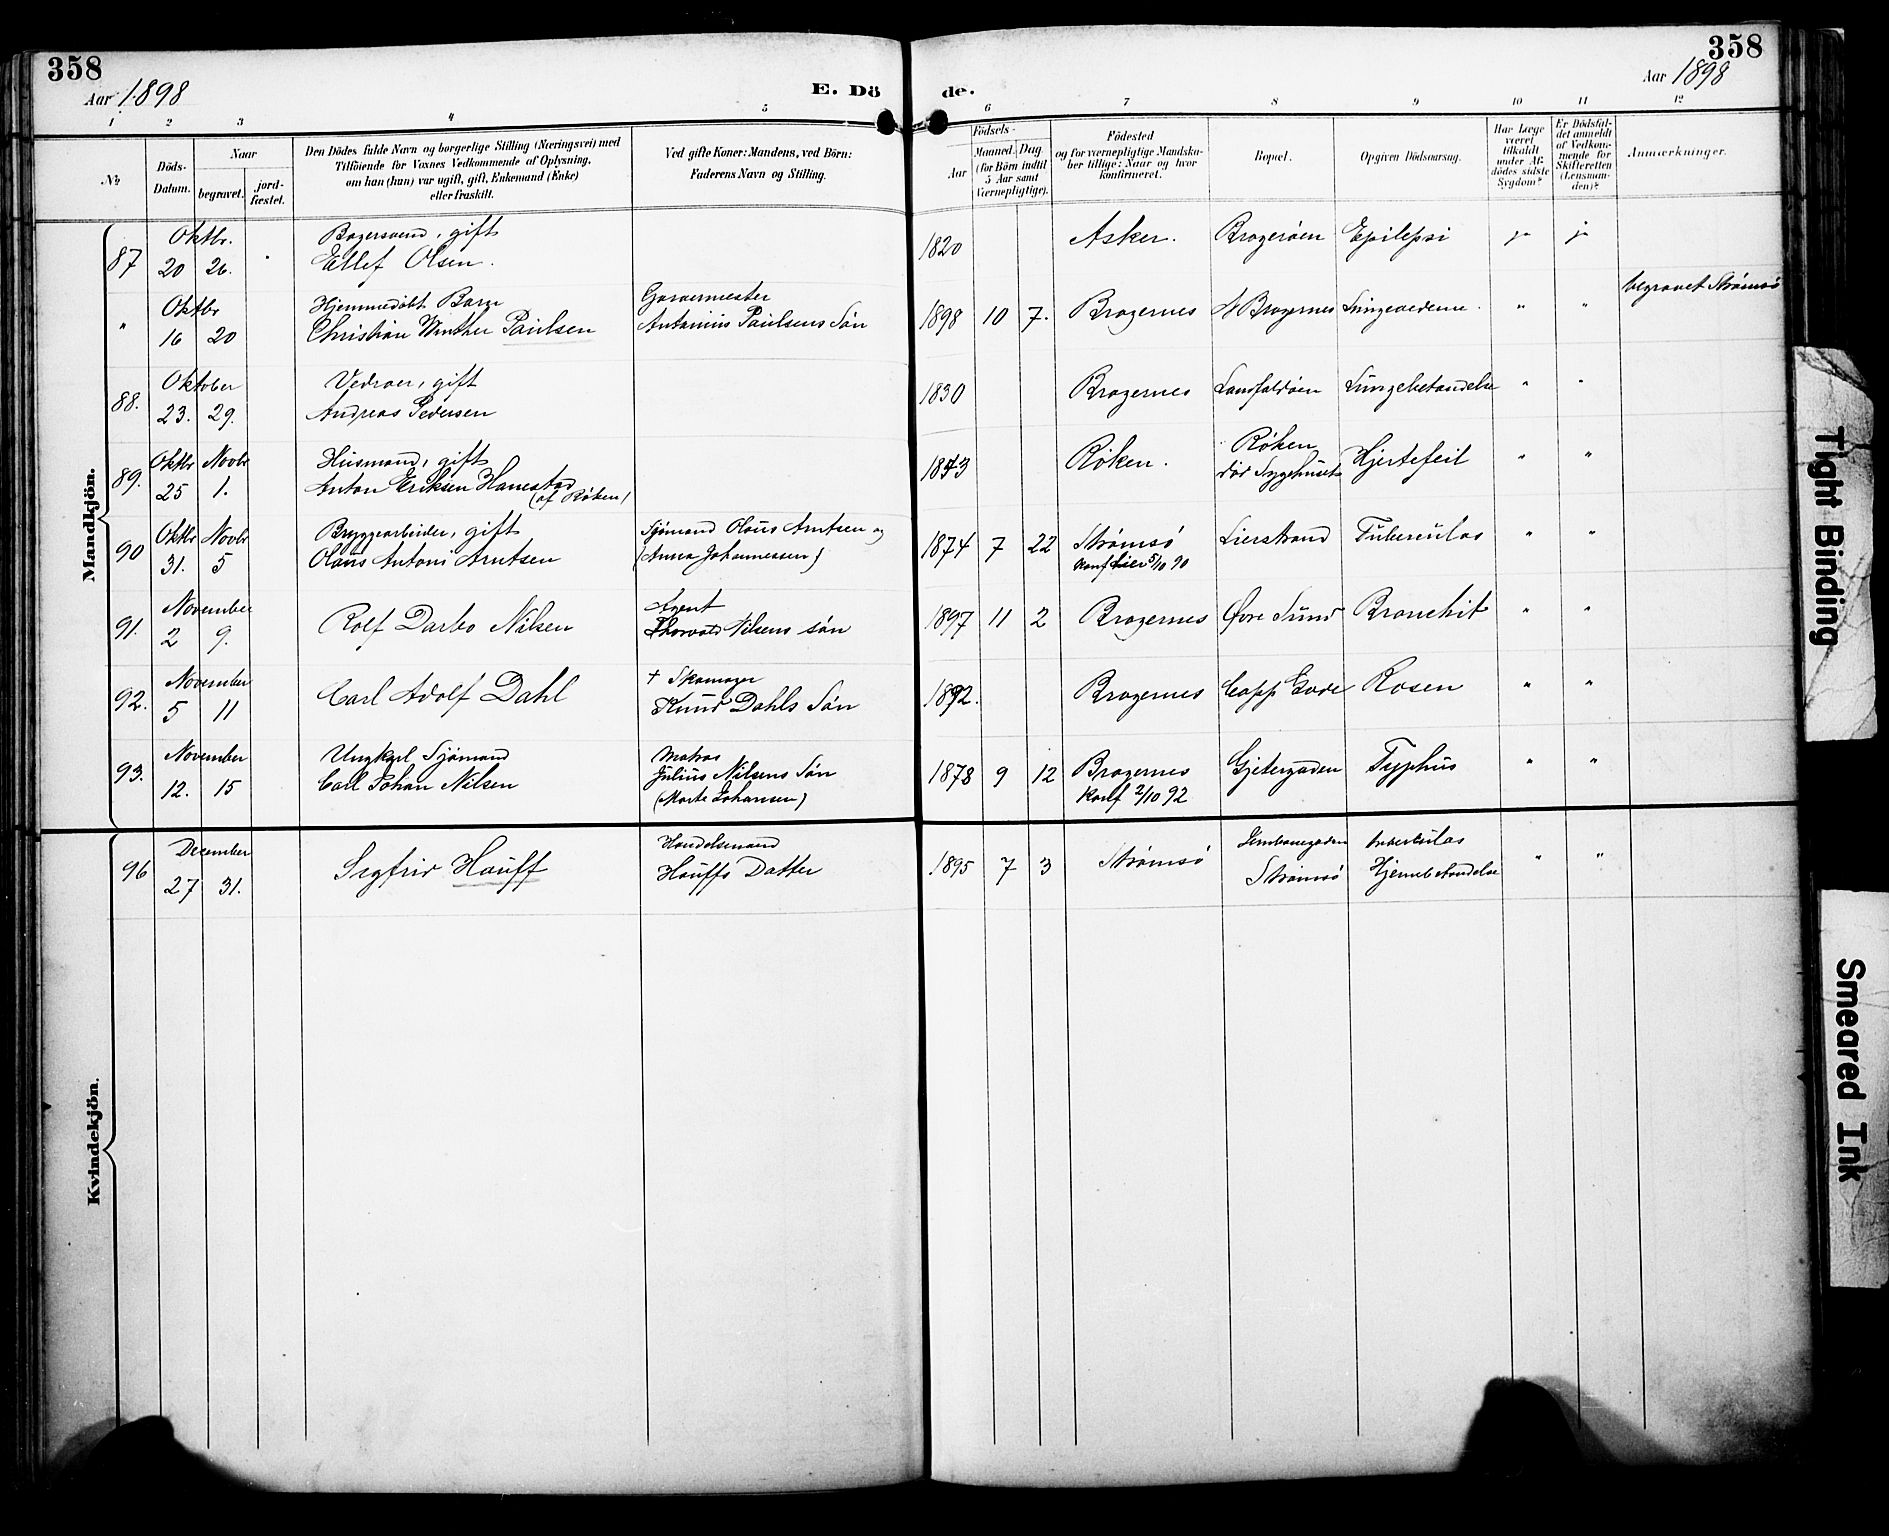 358
Aar 1898
E. Dö
de.
Aar 1898
358
1 2 3 4 5 6 7 8 9 10 11 12
№
Döds-
Datum.
Naar
begravet.
jord-
fæstet.
Den Dödes fulde Navn og borgerlige Stilling (Næringsvei) med
Tilföiende for Voxnes Vedkommende af Oplysning,
om han (hun) var ugift, gift, Enkemand (Enke)
eller fraskilt.
Ved gifte Koner: Mandens, ved Börn:
Faderens Navn og Stilling.
Födsels-
Aar
Maaned. Dag
(for Börn indtil
5 Aar samt
Værnepligtige).
Födested
og for værnepligtige Mandskа-
ber tillige: Naar og hvor
konfirmeret.
Bopæl.
Opgiven Dödsaarsag.
Har Læge
været
tilkaldt
under Af-
dödes sidste
Sygdom?
Er Dödsfal-
det anmeldt
af Vedkom-
mende for
Skifteretten
(Lensman-
den)?
Anmærkninger.
Mandkjön.
87 Oktbr. 20 26. Bagersvend, gift
Ellef Olsen. 1820 Asker. Bragerøen Epilepsi ja ja
" Oktbr 16 20 Hjemmedøbt Barn
Christian Winther Paulsen Garvermester
Antonius Paulsens Søn 1898 10 7. Bragernes N Bragernes Lungeoedem. " " begravet Strømsø
88. Oktober 23. 29. Vedraer, gift
Andreas Pedersen 1830 Bragernes Landfaldøen Lungebetændelse " "
89. Oktbr 25 Novbr 1. Husmand, gift
Anton Eriksen Hanestad
(af Røken) 1843 Røken. Røken
død Sygehuset Hjertefeil " "
90 Oktbr 31. Novbr 5 Bryggearbeider, gift
Olaus Antoni Arntsen Sjømand Olaus Arntsen og
(Anna Johannessen) 1874 7 22 Strømsø
konf Lier 5/10 90 Lierstrand Tuberculos " "
91. November 2 9. Rolf Darbo Nilsen Agent
Thorvald Nilsens søn 1897 11 2 Bragernes Øvre Sund Bronchit " "
92. November 5 11 Carl Adolf Dahl † Skomager
Knud Dahls Søn 1892. Bragernes Capp Gade Rosen " "
93. November 12. 15 Ungkarl Sjømand
Carl Johan Nilsen Matros
Julius Nilsens Søn
(Marte Johansen) 1878 9 12 Bragernes
Konf 2/10 92 Gjetergaden Typhus " "
Kvindekjön.
96 December 27 31. Sigfrid Hauff Handelsmand
Hauffs Datter 1895 7 3 Strømsø Jernbanegaden
Strømsø tuberkuløs
Hjernebetændelse " "
Tight Binding
Smeared Ink